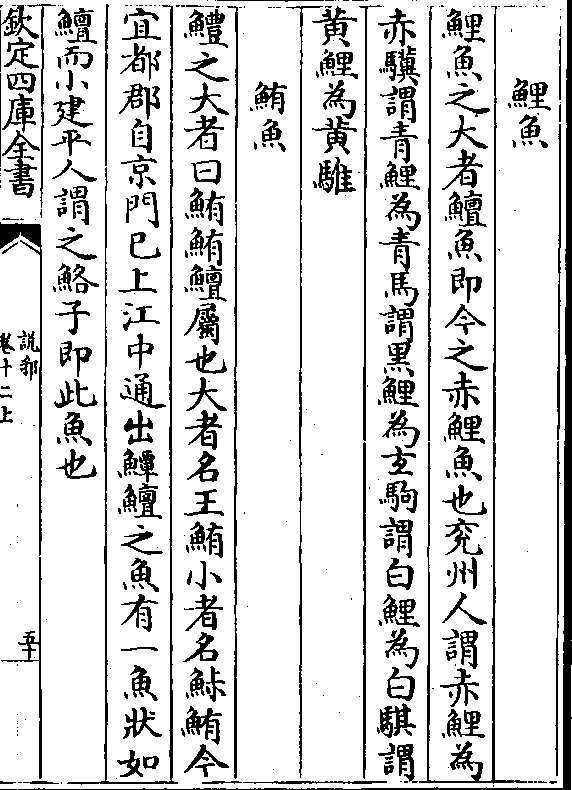 鯉魚
鯉魚之大者鱣魚即今之赤鯉魚也兖州人謂赤鯉為
赤驥謂青鯉為青馬謂黑鯉為𤣥駒謂白鯉為白騏謂
黄鯉為黄騅
鮪魚
鱧之大者曰鮪鮪鱣屬也大者名王鮪小者名鮛鮪今
宜都郡自京門已上江中通出鱏鱣之魚有一魚狀如
鱣而小建平人謂之鮥子即此魚也
欽定四庫全書
說郛
卷十二上
五十